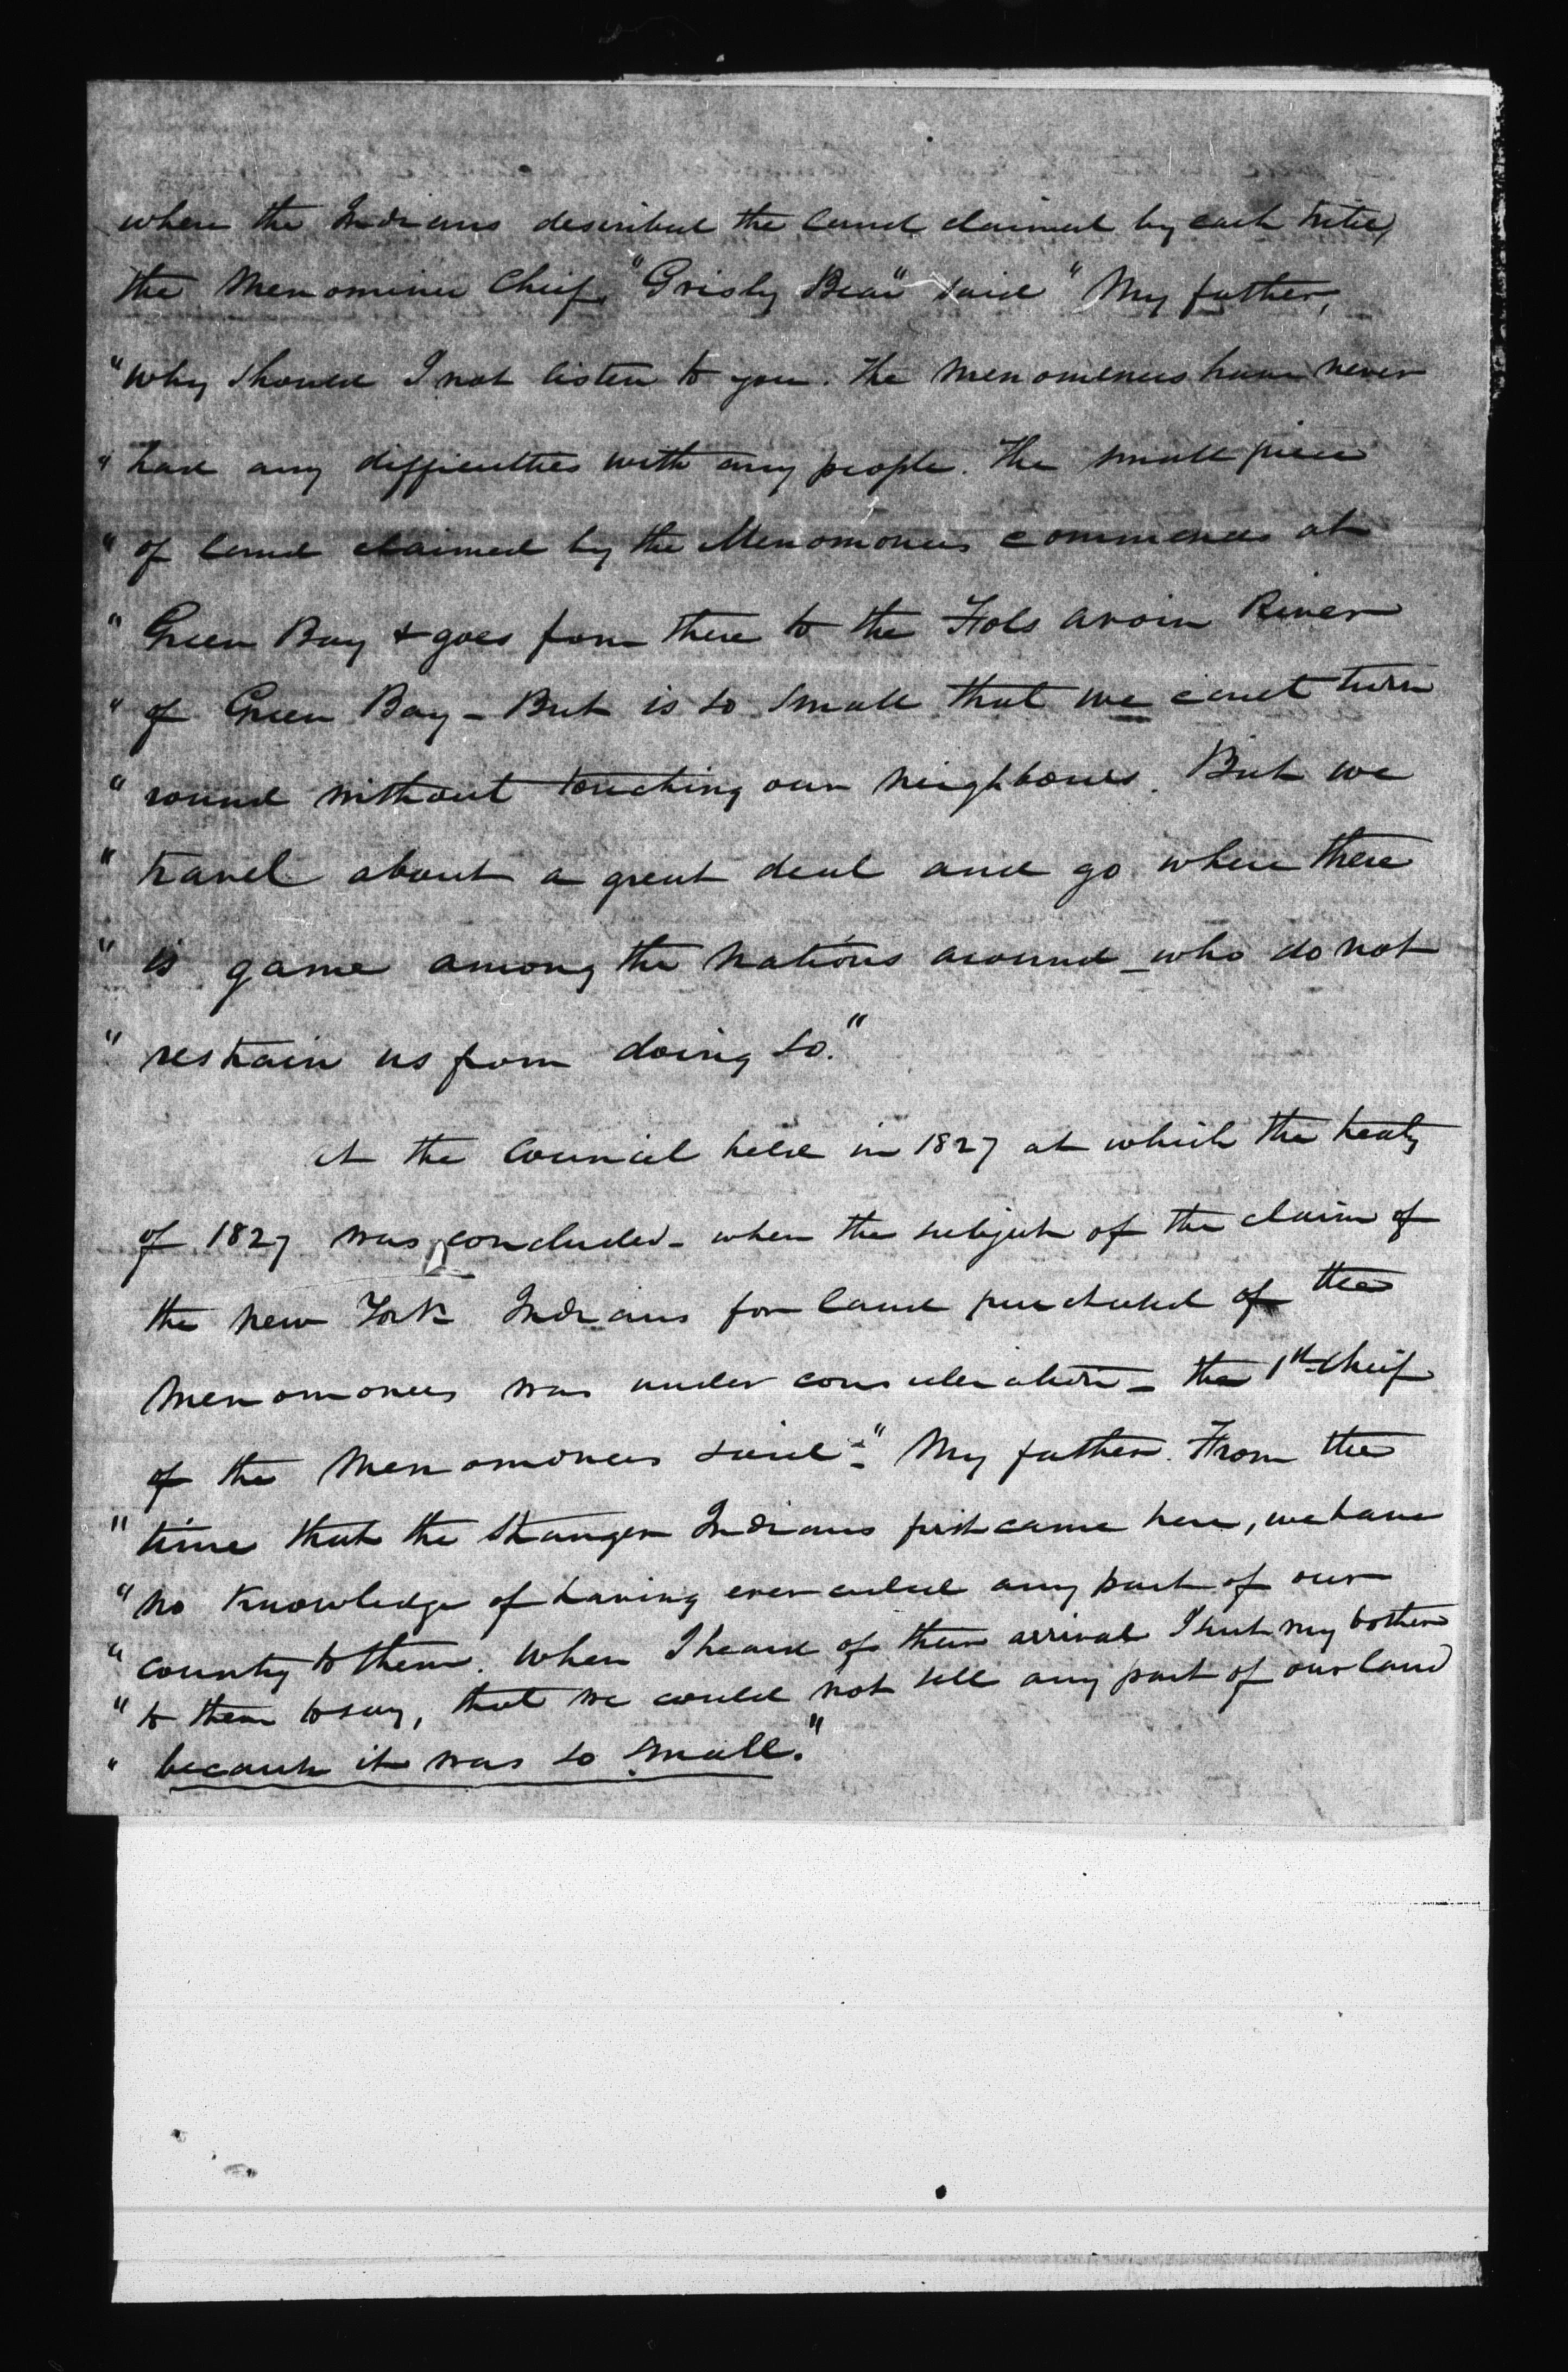 where the Indians described the land claimed by each tribe,
the Menominie Chief, "Grisly Bear" said "My father,
"why should I not listen to you. The Menomenees have never
"had any difficulties with any people. The small piece
"of land claimed by the Menomonees commences at
"Green Bay & goes from there to the Fols avoin River
"of Green Bay - But is so small that we cant turn
"round without touching our neighbours. But we
"travel about a great deal and go where there
"is game among the nations around - who do not
"restrain us from doing so."
At the Council held in 1827 at which the treaty
of 1827 was concluded - when the subject of the claim of
the New York Indians for land purchased of the
Menomonees was under consideration - the 1st Chief
of the Menomonees said - "My father. From the
"time that the stranger Indians first came here, we have
"no knowledge of having ever ceded any part of our
"country to them. When I heard of their arrival I sent my brother
"to them to say, that we could not sell any part of our land
"because it was so small."